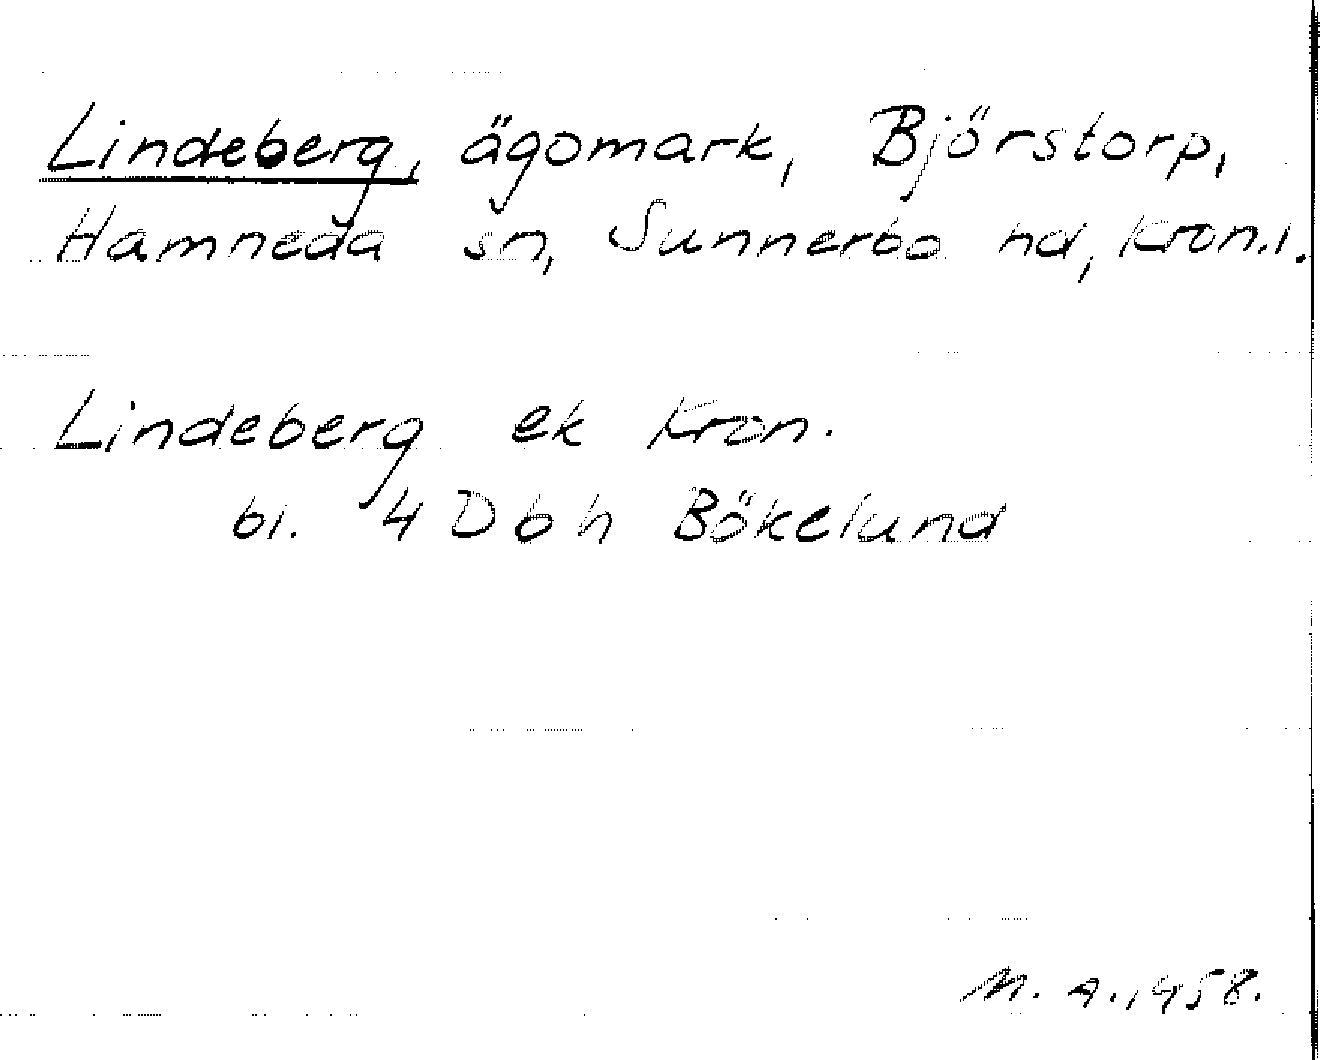 Lindeberg, ägomark, Björstorp,
Hamneda sn, Sunnerbo hd, Kron.l.
Lindeberg ek Kron.
bl. 4 D b h Bökelund
M. A. 1958.